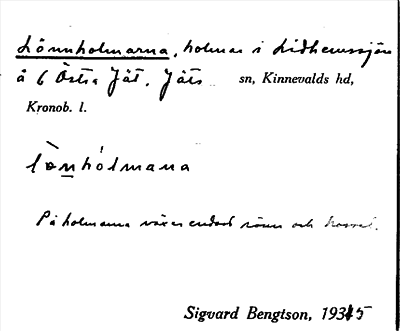 Lönnholmarna, holmar i Lidhemssjön
å 6 Östra Jät. Jäts sn, Kinnevalds hd,
Kronob. l.
lònhólmana
På holmarna växer endast rönn och hassel.
Sigvard Bengtson, 1935